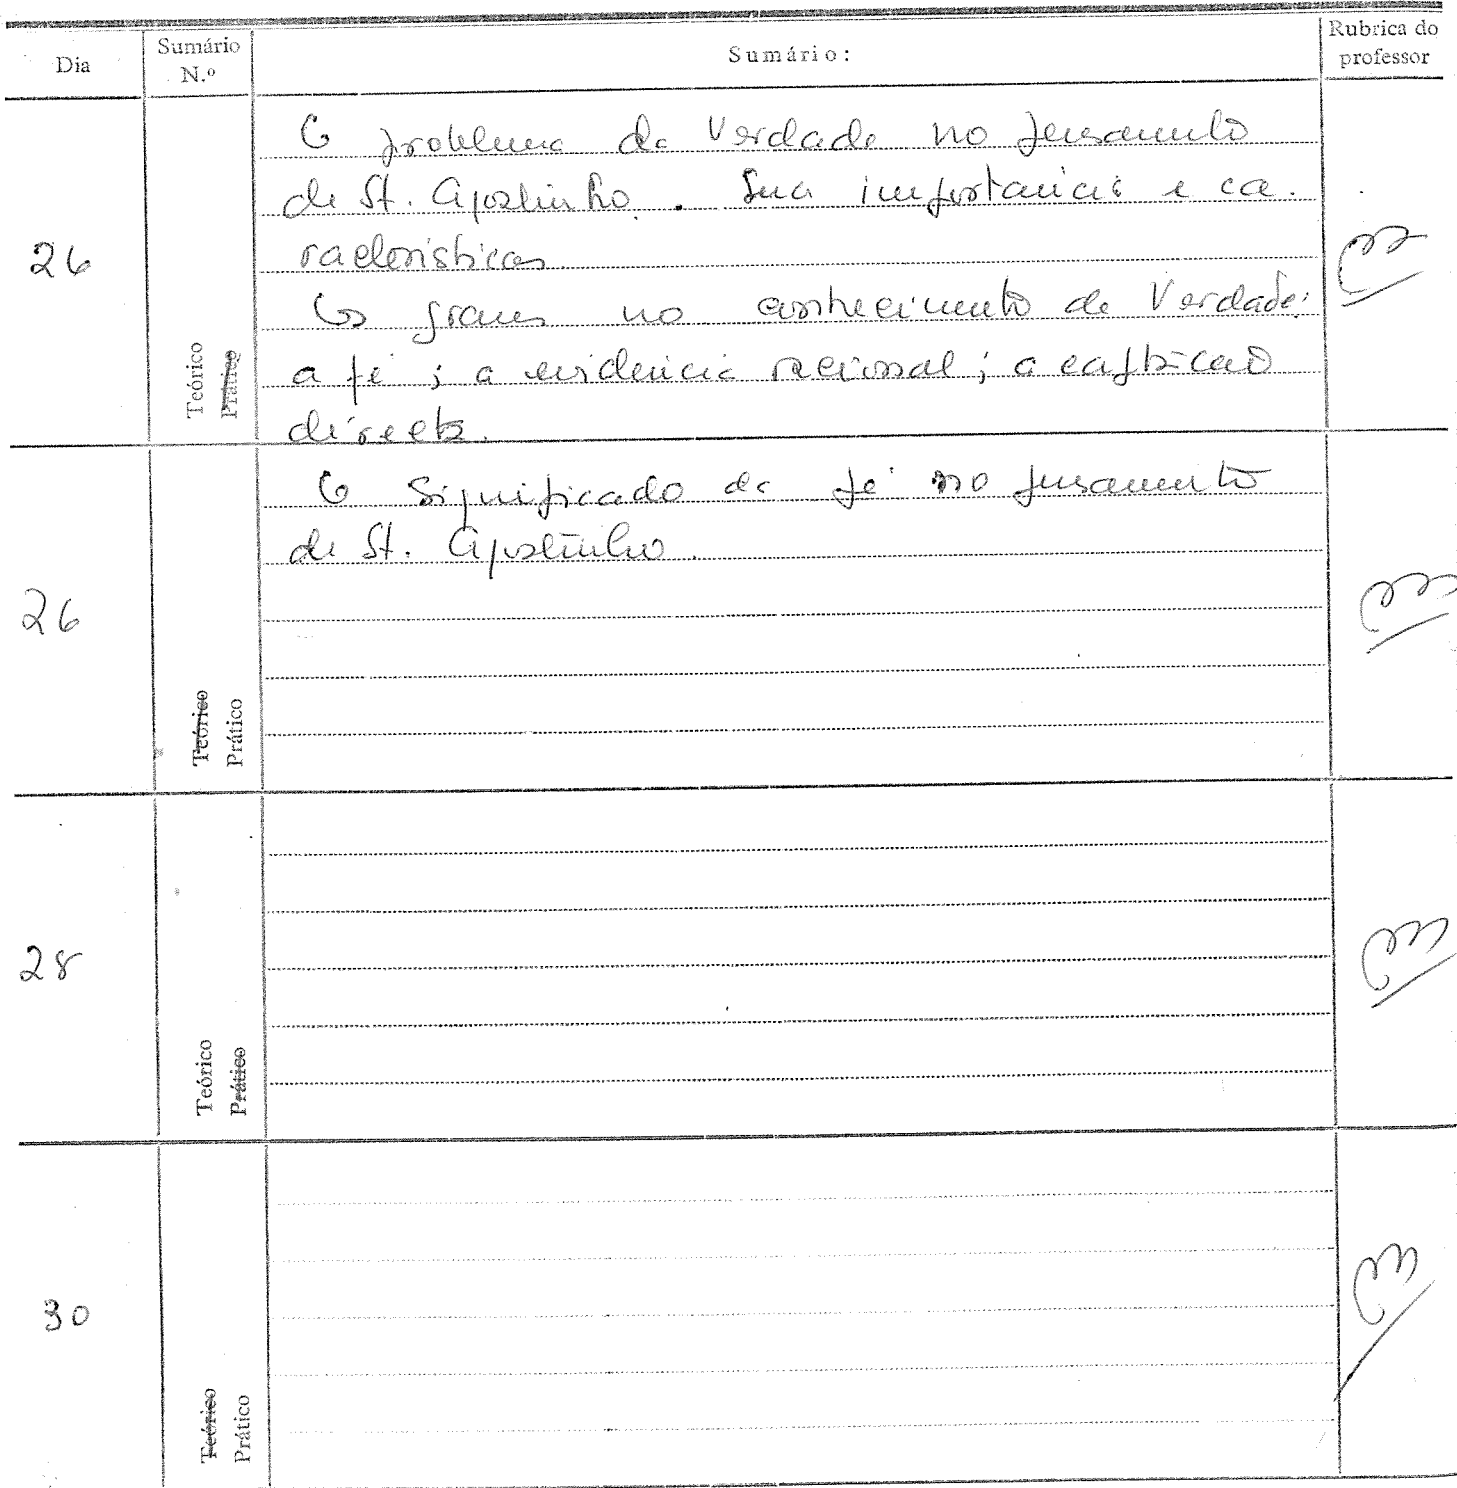 Dia Sumário N.º Sumário: Rubrica do professor
26
O problema da Verdade no pensamento
de St. Agostinho. Sua importancia e ca-
racterísticas.
Os graus no conhecimento da Verdade:
a fé; a evidencia racional; a captacao
directa.
Teórico
Prático
26
O Significado da fé no pensamento
de St. Agostinho.
Teórico
Prático
28
Teórico
Prático
30
Teórico
Prático